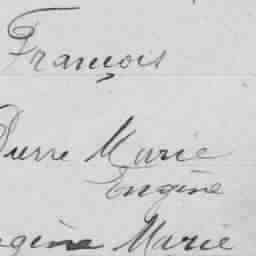 François
Pierre Marie
Eugène
Eugène Marie